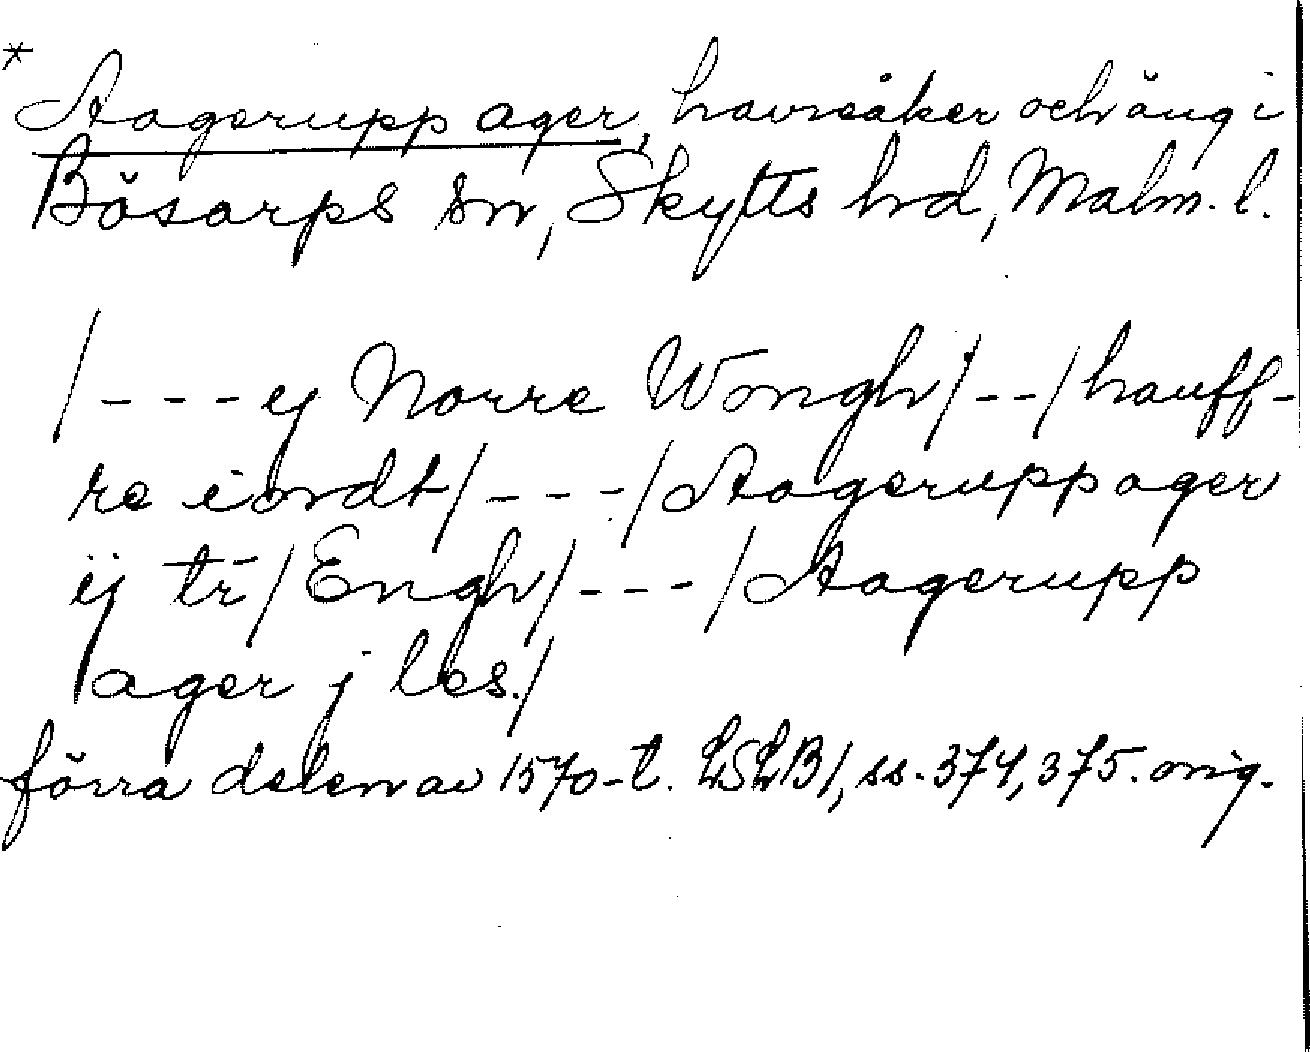 * Aagerupp ager, havreåker och äng i
Bösarps sn, Skytts hd, Malm. l.
/---ej Norre Wongh/--/hauff-
re iordt/---/Aageruppager
ij tr/Engh/---/Aagerupp
ager j les./
förra delen av 1570-t. LSLB1, ss. 374, 375. orig.